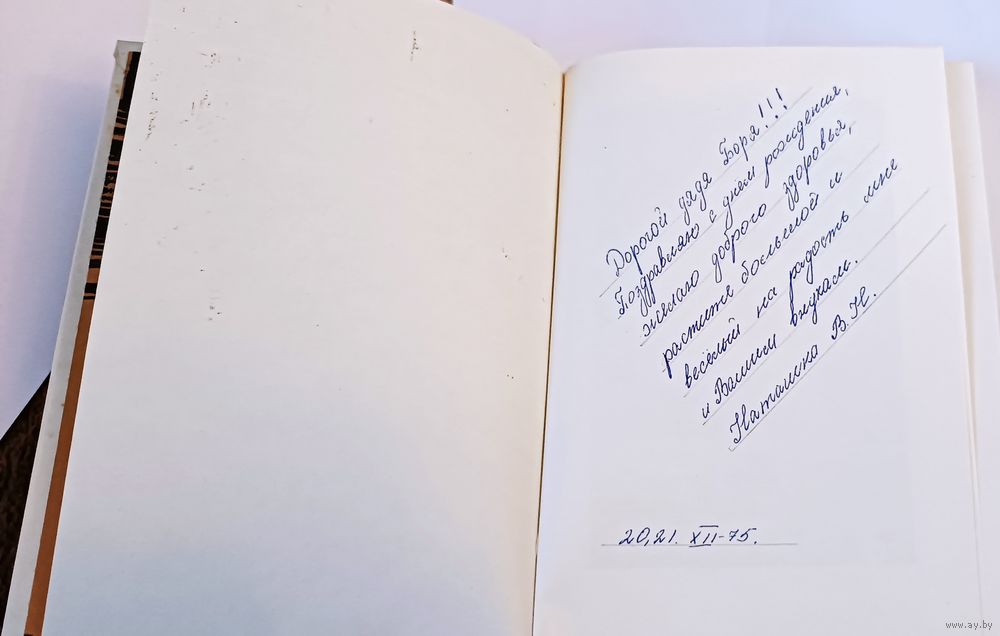 Дорогой дядя Боря!!!
Поздравляю с днём рождения,
желаю доброго здоровья,
растите большой и
весёлый на радость мне
и Вашим внукам.
Наташка В.Н.
20,21. XII-75.
www.ay.by